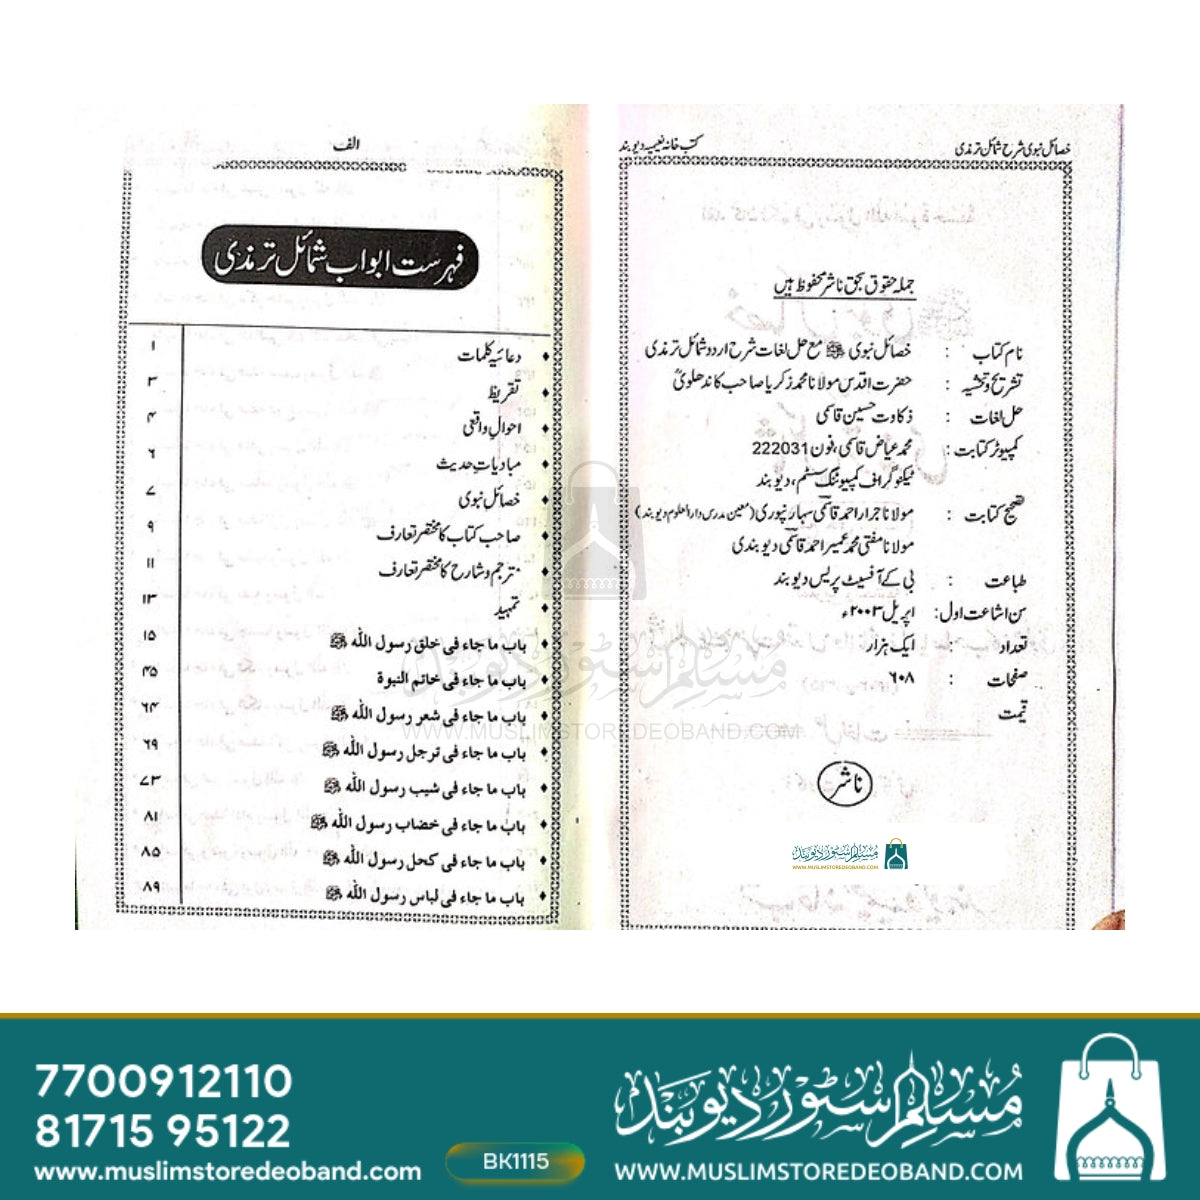 خصائل نبوی شرح شمائل ترمذی
کتب خانہ نعیمیہ دیوبند
جملہ حقوق بحق ناشر محفوظ ہیں
نام کتاب : خصائل نبوی ﷺ مع حل لغات شرح اردو شمائل ترمذی
تشریح و تحشیہ : حضرت اقدس مولانا محمد زکریا صاحب کاندھلویؒ
حل لغات : ذکاوت حسین قاسمی
کمپیوٹر کتابت : محمد عیاض قاسمی، فون 222031
ٹیکنوگراف کمپیوٹنگ سسٹم، دیوبند
تصحیح کتابت : مولانا جرار احمد قاسمی سہارنپوری (معین مدرس دارالعلوم دیوبند)
مولانا مفتی محمد عمیر احمد قاسمی دیوبندی
طباعت : بی کے آفسیٹ پریس دیوبند
سن اشاعت اول : اپریل ۲۰۰۳ء
تعداد : ایک ہزار
صفحات : ۶۰۸
قیمت
ناشر
مسلم سٹور دیوبند
WWW.MUSLIMSTOREDEOBAND.COM
الف
فہرست ابواب شمائل ترمذی
دعائیہ کلمات ۱
تقریظ ۳
احوال واقعی ۴
مبادیات حدیث ۶
خصائل نبوی ۷
صاحب کتاب کا مختصر تعارف ۹
مترجم و شارح کا مختصر تعارف ۱۱
تمہید ۱۳
باب ما جاء فی خلق رسول اللہ ﷺ ۱۵
باب ما جاء فی خاتم النبوة ۴۵
باب ما جاء فی شعر رسول اللہ ﷺ ۶۴
باب ما جاء فی ترجل رسول اللہ ﷺ ۶۹
باب ما جاء فی شیب رسول اللہ ﷺ ۷۳
باب ما جاء فی خضاب رسول اللہ ﷺ ۸۱
باب ما جاء فی کحل رسول اللہ ﷺ ۸۵
باب ما جاء فی لباس رسول اللہ ﷺ ۸۹
مسلم سٹور دیوبند
WWW.MUSLIMSTOREDEOBAND.COM
7700912110
81715 95122
www.muslimstoredeoband.com
BK1115
مسلم سٹور دیوبند
WWW.MUSLIMSTOREDEOBAND.COM